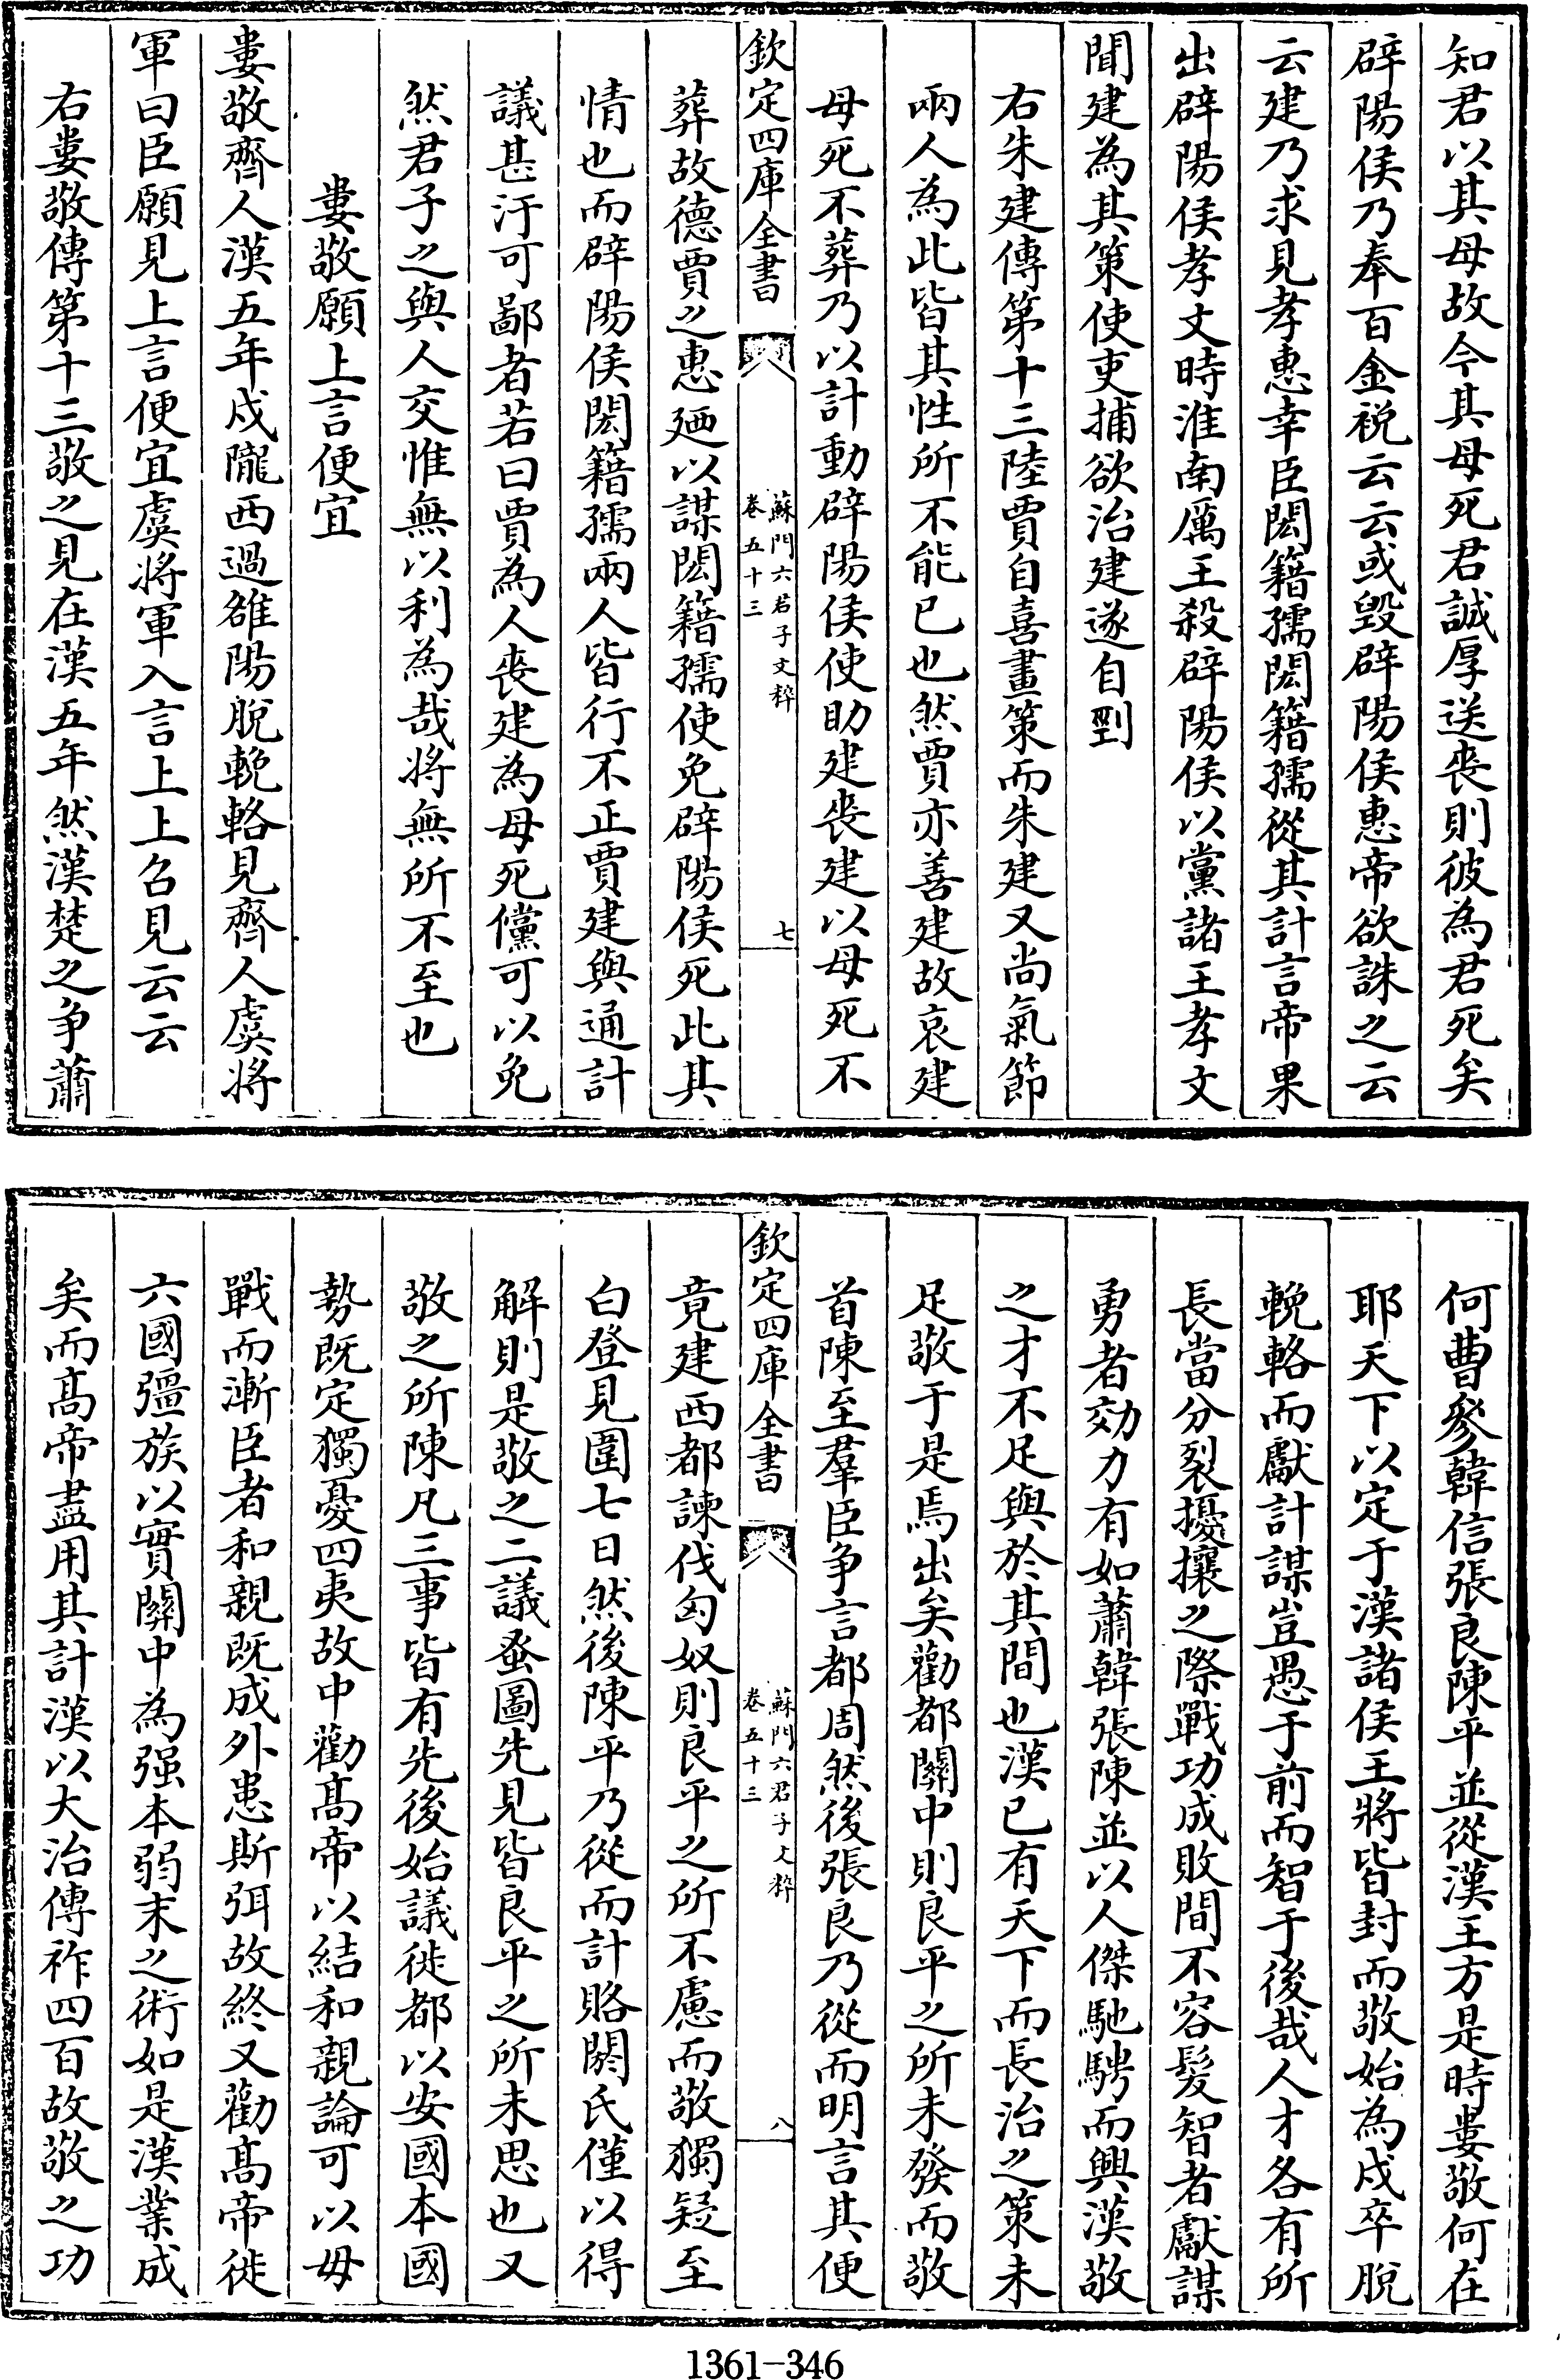 知君以其母故今其母死君誠厚送喪則彼為君死矣
辟陽侯乃奉百金祱云云或毀辟陽侯惠帝欲誅之云
云建乃求見孝惠幸臣閎籍孺閎籍孺從其計言帝果
出辟陽侯孝文時淮南厲王殺辟陽侯以黨諸王孝文
聞建為其策使吏捕欲治建遂自剄
右朱建傳第十三陸賈自喜畫策而朱建又尚氣節
兩人為此皆其性所不能已也然賈亦善建故哀建
母死不葬乃以計動辟陽侯使助建喪建以母死不
欽定四庫全書
蘇門六君子文粹
卷五十三
七
葬故德賈之惠廼以謀閎籍孺使免辟陽侯死此其
情也而辟陽侯閎籍孺兩人皆行不正賈建與通計
議甚汙可鄙者若曰賈為人喪建為母死儻可以免
然君子之與人交惟無以利為哉將無所不至也
婁敬願上言便宜
婁敬齊人漢五年戍隴西過雒陽脫輓輅見齊人虞將
軍曰臣願見上言便宜虞將軍入言上上召見云云
右婁敬傳第十三敬之見在漢五年然漢楚之爭蕭
何曹參韓信張良陳平並從漢王方是時婁敬何在
耶天下以定于漢諸侯王將皆封而敬始為戍卒脫
輓輅而獻計謀豈愚于前而智于後哉人才各有所
長當分裂擾攘之際戰功成敗間不容髮智者獻謀
勇者効力有如蕭韓張陳並以人傑馳騁而興漢敬
之才不足與於其間也漢已有天下而長治之策未
足敬于是焉出矣勸都關中則良平之所未發而敬
首陳至羣臣爭言都周然後張良乃從而明言其便
欽定四庫全書
蘇門六君子文粹
卷五十三
八
竟建西都諫伐匈奴則良平之所不慮而敬獨疑至
白登見圍七日然後陳平乃從而計賂閼氏僅以得
解則是敬之二議蚤圖先見皆良平之所未思也又
敬之所陳凡三事皆有先後始議徙都以安國本國
勢既定獨憂四夷故中勸髙帝以結和親論可以毋
戰而漸臣者和親既成外患斯弭故終又勸髙帝徙
六國彊族以實關中為强本弱末之術如是漢業成
矣而髙帝盡用其計漢以大治傳祚四百故敬之功
1361-346